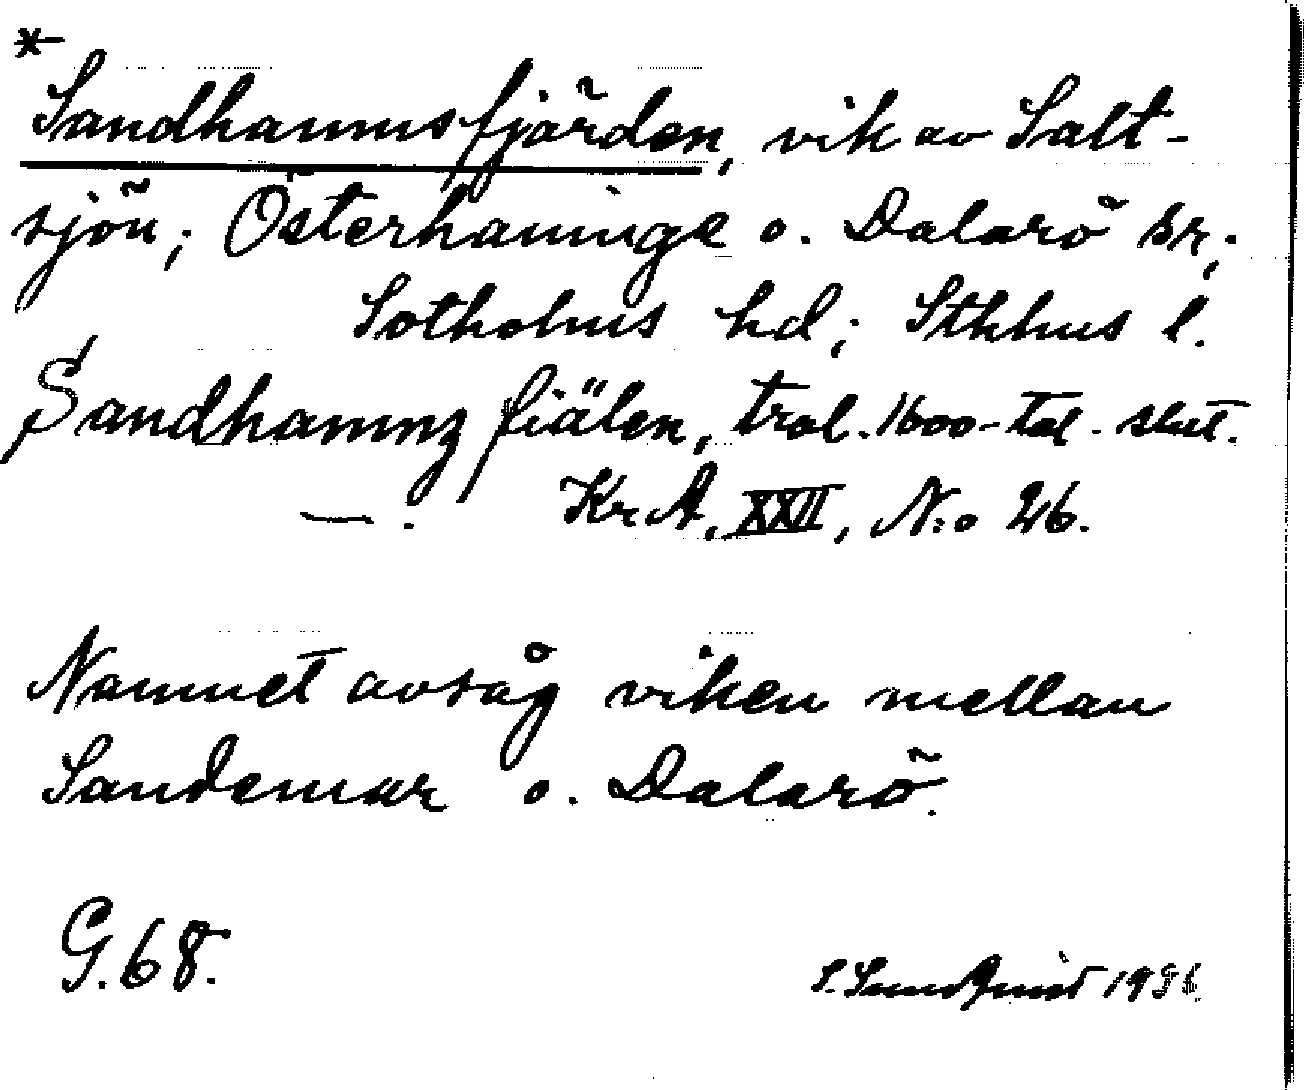 *
Sandhamnsfjärden, vik av Salt-
sjön; Österhaninge o. Dalarö snr;
Sotholms hd; Sthlms l.
Sandhamnz fiälen, trol. 1600-tal. slut.
—. KrA, XXII, N:o 26.
Namnet avsåg viken mellan
Sandemar o. Dalarö.
G. 68.
S. Sundquist